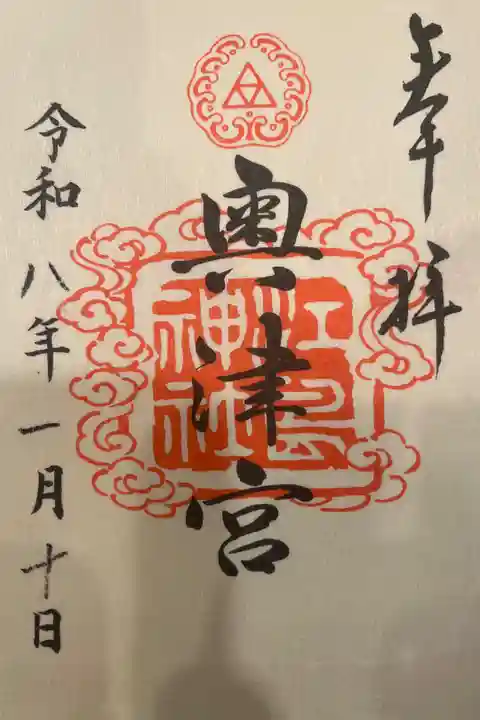 奉拝
奥津宮
江島神社
令和八年一月十日